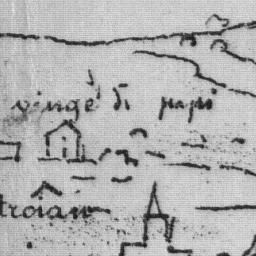 vinge di papi
troian